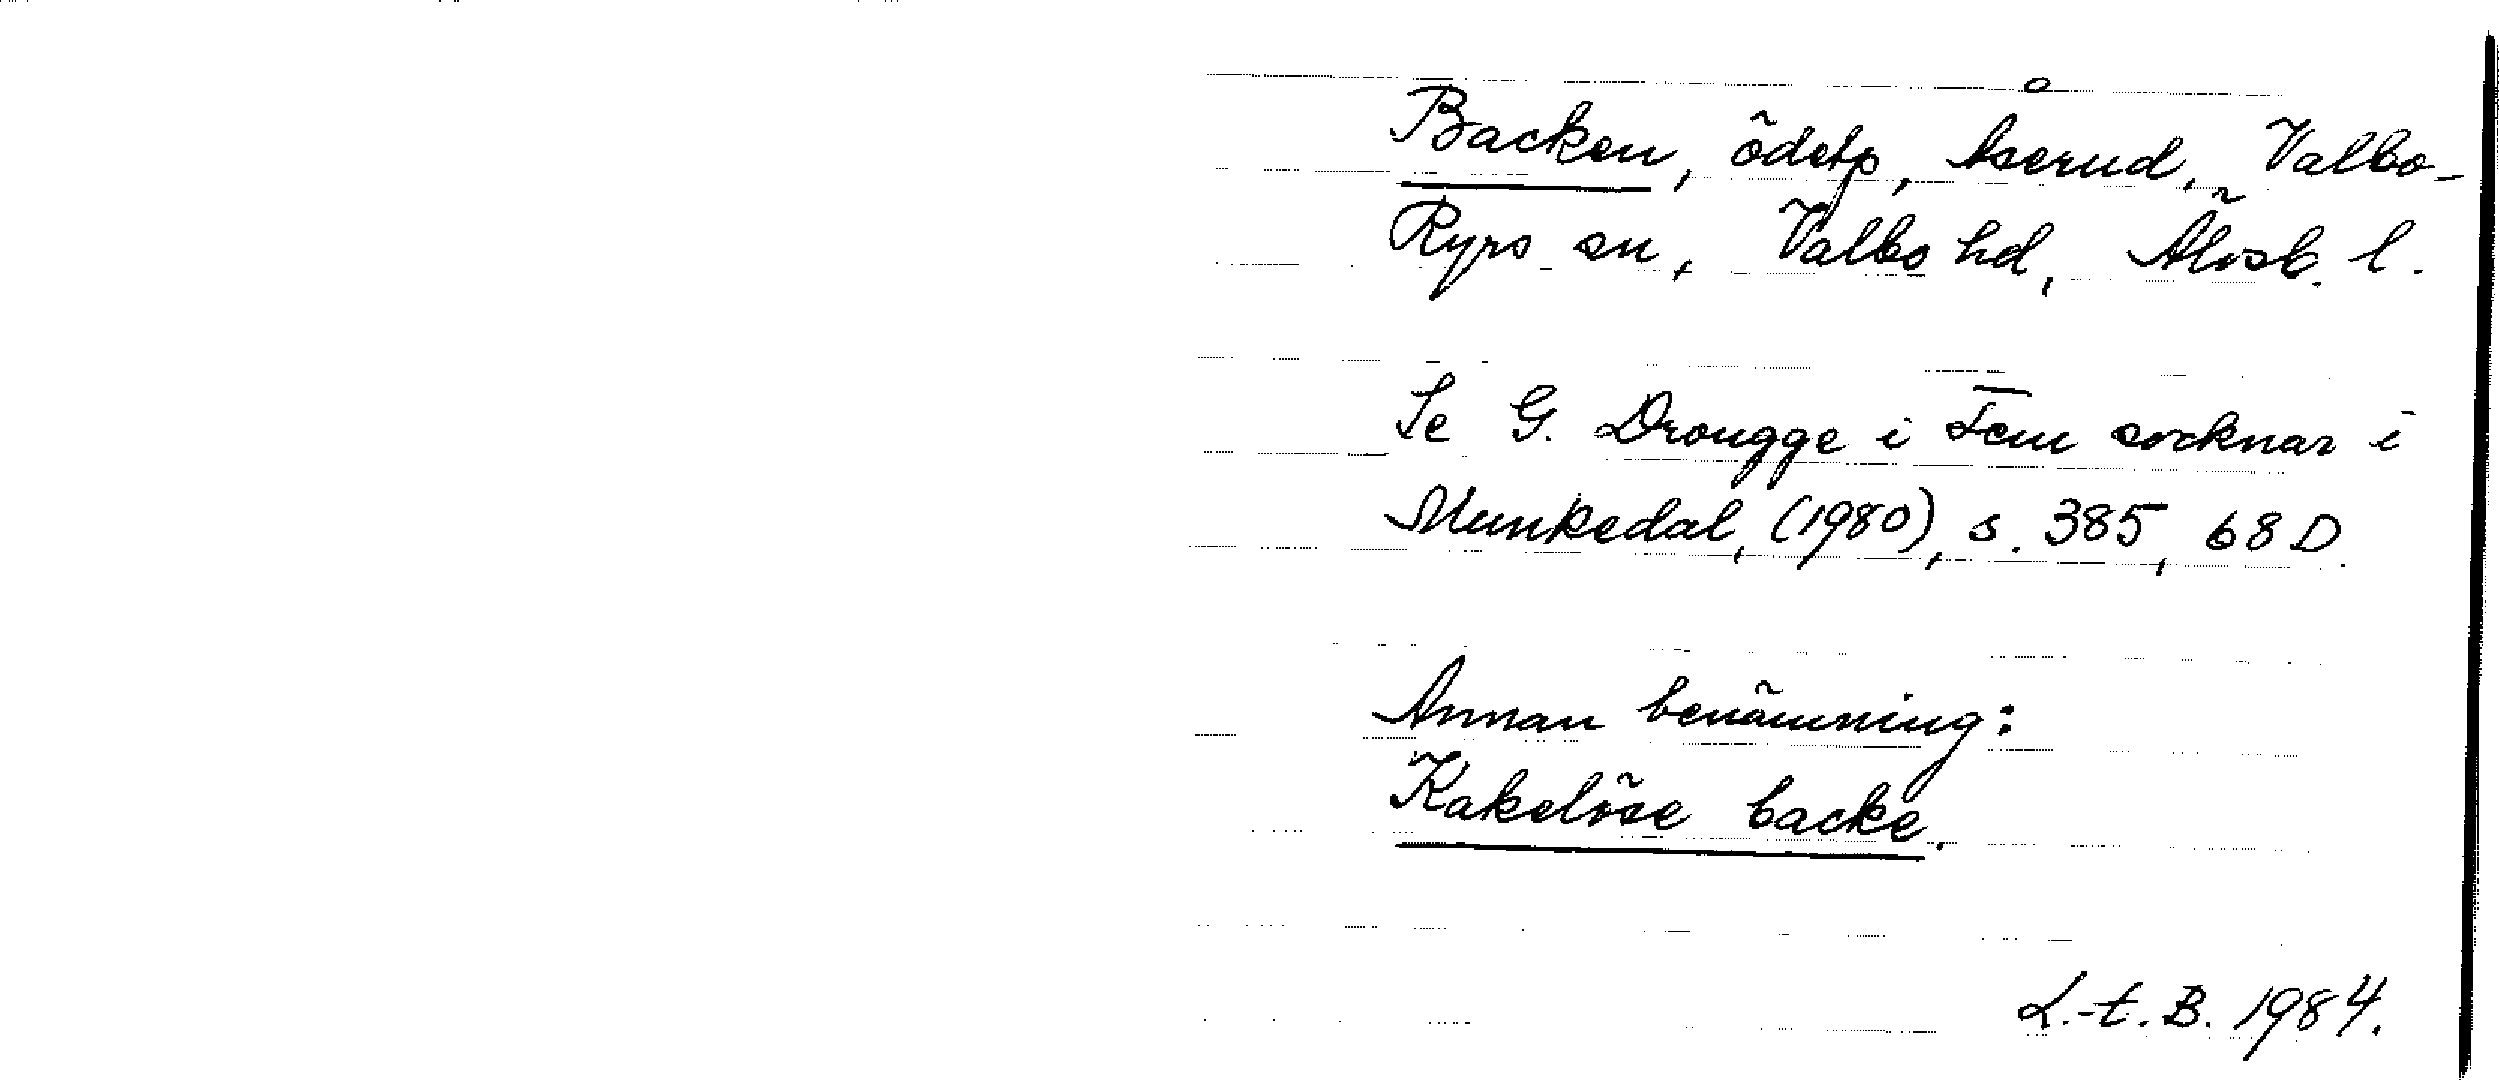 Backen, ödetp, Åserud, Valbo-
Ryrs sn, Valbo hd, Älvsb. l.
Se G. Drougge i Fem socknar i
Munkedal, (1980), s. 385, 68 D.
Annan benämning:
Kakelöse backe.
L.-t. B. 1984.